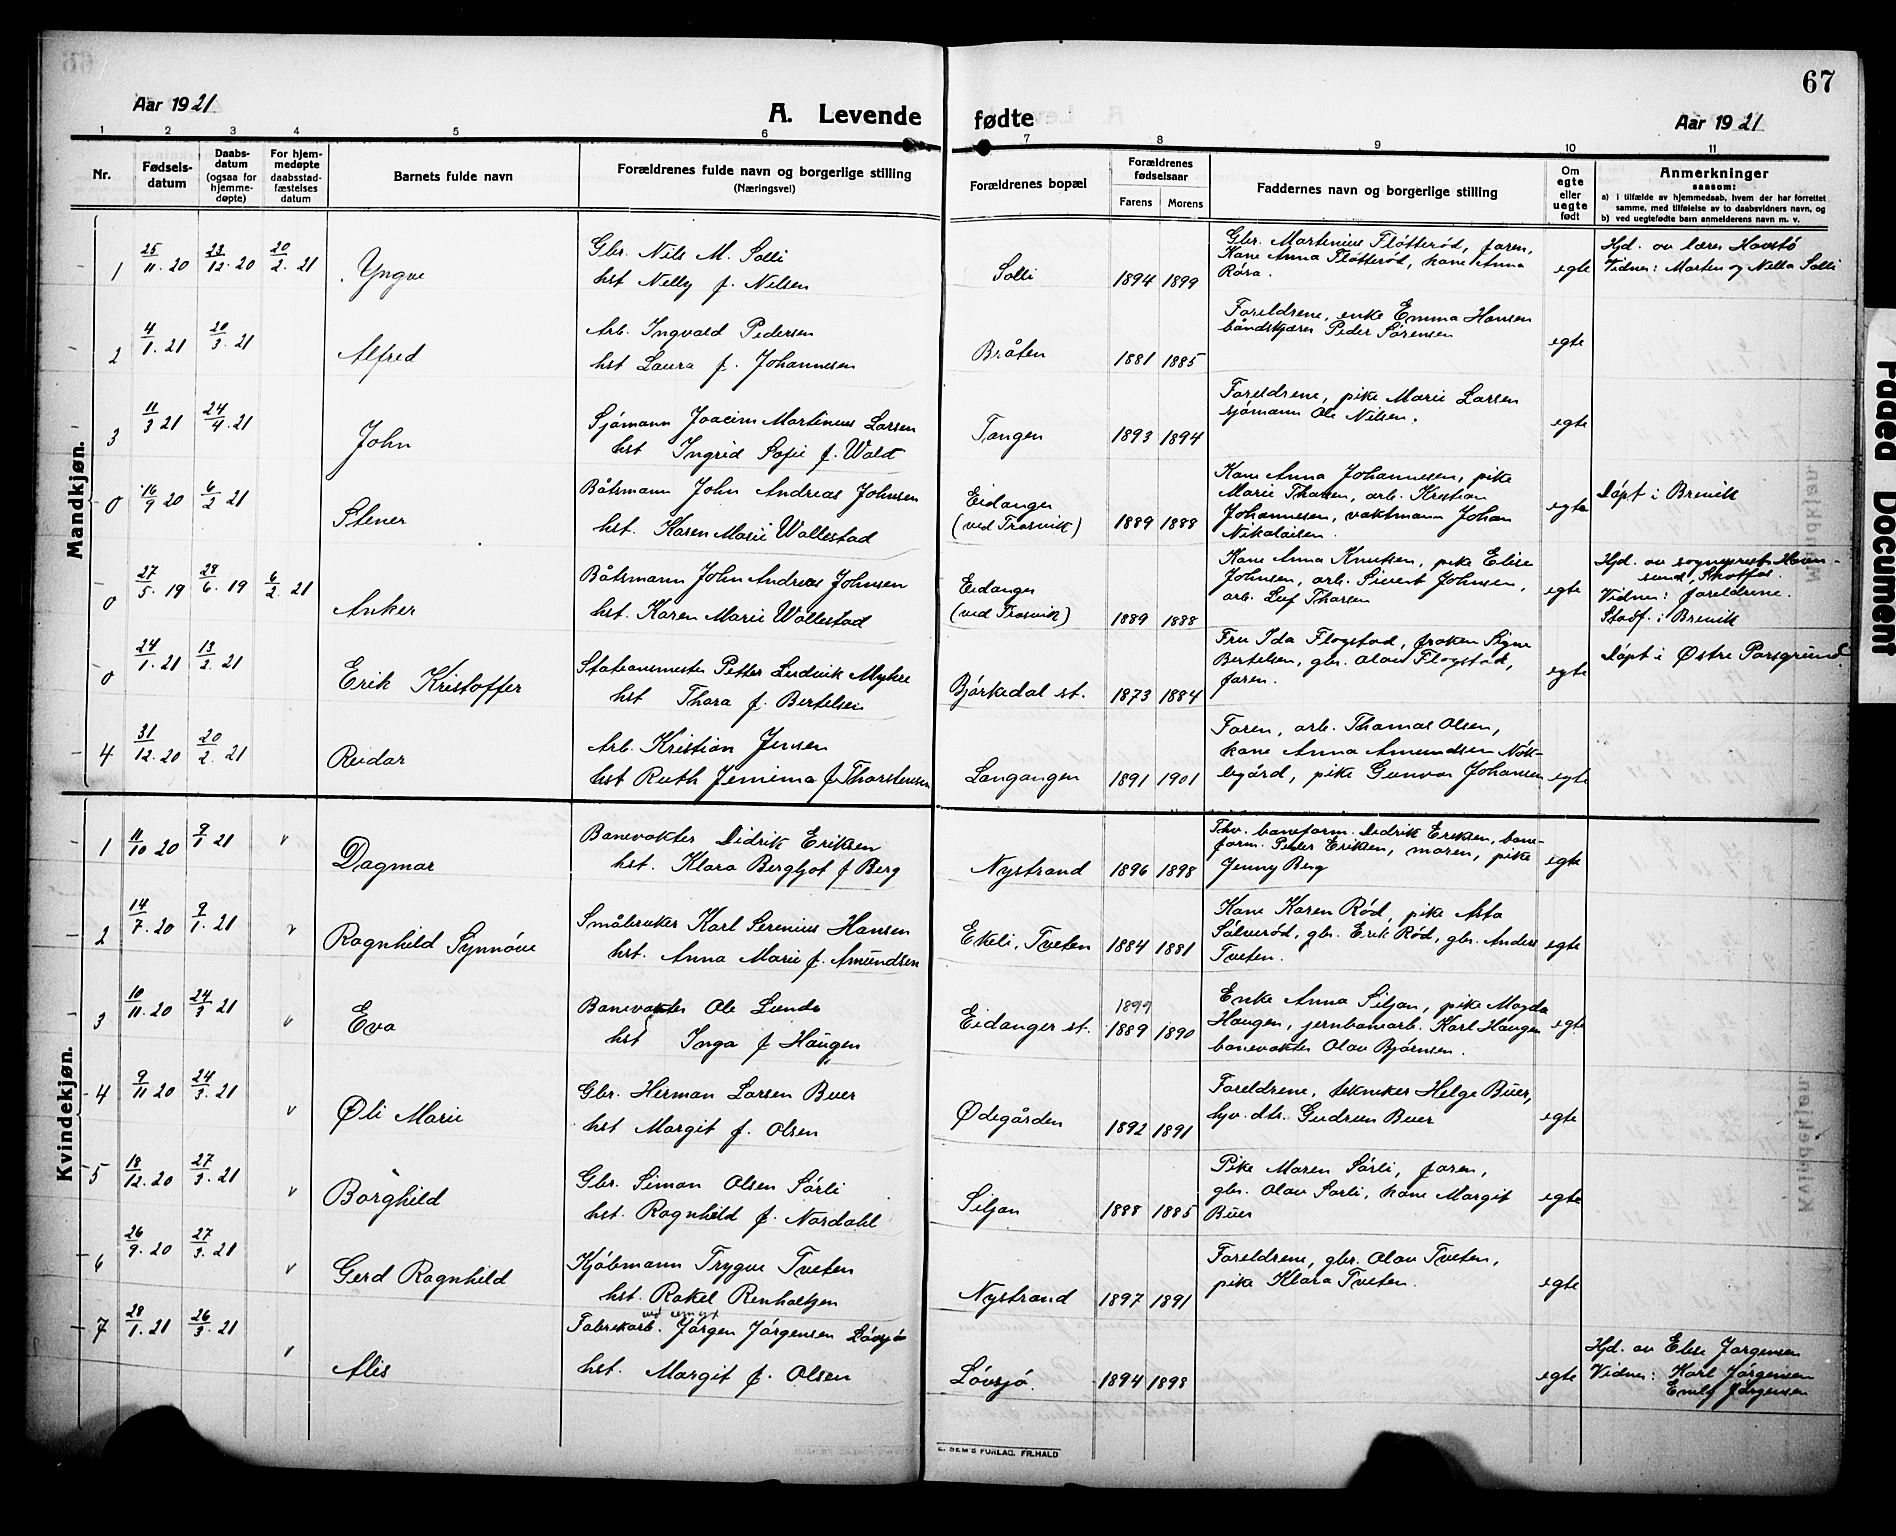 67
Aar 1921
A. Levende fødte
Aar 1921
1 2 3 4 5 6 7 8 9 10 11
Nr.
Fødsels-
datum
Daabs-
datum
(ogsaa for
hjemme-
døpte)
For hjem-
medøpte
daabsstad-
fæstelses
datum
Barnets fulde navn
Forældrenes fulde navn og borgerlige stilling
(Næringsvei)
Forældrenes bopæl
Forældrenes
fødselsaar
Farens Morens
Faddernes navn og borgerlige stilling
Om
egte
eller
uegte
født
Anmerkninger
saasom:
a) i tilfælde av hjemmedaab, hvem der har forrettet
samme, med tilføielse av to daabsvidners navn, og
b) ved uegtefødte barn anmelderens navn m. v.
Mandkjøn.
1 25/11. 20 23/12. 20 20/2. 21 Yngve
Gbr. Nils M. Solli
hst Nelly f. Nilsen
Solli 1894 1899
Gbr. Martinius Fløtterød, faren,
Kone Anna Fløtterød, kone Anna
Røra.
egte
Hjd. av lærer Havstø
Vidner: Marten og Nella Solli
2 4/1. 21 20/3. 21 Alfred
Arb. Ingvald Pedersen
hst Laura f. Johannesen
Bråten 1881 1885
Foreldrene, enke Emma Hansen
båndskjærer Peder Sørensen
egte
3 11/3 21 24/4. 21 John
Sjømann Joacim Martinius Larsen
hst Ingrid Sofie f. Wold
Tangen 1893 1894
Foreldrene, pike Marie Larsen
sjømann Ole Nilsen.
egte
0 16/9 20 6/2 21 Stener
Båtsmann John Andreas Johnsen
hst. Karen Marie Wallestad
Eidanger
(ved Trosvik) 1889 1888
Kone Anna Johannesen, pike
Marie Thorsen, arb. Kristian
Johannesen, vaktmann Johan
Nikolaisen.
egte
Døpt i Brevik
0 27/5. 19 28/6. 19 6/2. 21 Anker
Båtsmann John Andreas Johnsen
hst. Karen Marie Wallestad
Eidanger
(ved Trosvik) 1889 1888
Kone Anna Knutsen, pike Elise
Johnsen, arb. Sivert Johnsen,
arb. Leif Thorsen
egte
Hjd. av sogneprest
Skotfos.
Vidner: foreldrene.
Stadf. i Brevik
0 24/1. 21 13/2. 21 Erik Kristoffer
Stationsmester Petter Ludvik Myhre
hst Thora f. Bertelsen
Bjørkedal st. 1873 1884
Fru Ida Flogstad, frøken Signe
Bertelsen, gbr. Olav Flogstad,
faren.
egte
Døpt i Østre Porsgrund.
4 31/12. 20 20/2. 21 Reidar
Arb. Kristian Jensen
hst Ruth Jemima f. Thorstensen
Langangen 1891 1901
Faren, arb. Thomas Olsen,
kone Anna Amundsen Nøk-
legård, pike Gunvor Johansen
egte
Kvindekjøn.
1 11/10 20 9/1 21 v Dagmar
Banevokter Didrik Eriksen
hst. Klara Bergljot f Berg
Nystrand 1896 1898
Thv. baneform. Didrik Eriksen, bane-
form. Peder Eriksen, moren, pike
Jenny Berg
egte
2 14/7. 20 9/1. 21 v Ragnhild Synnøve
Småbruker Karl Serenius Hansen
hst. Anna Marie f. Amundsen
Ekeli, Tveten 1884 1881
Kone Karen Rød, pike Asta
Sølverød, gbr. Erik Rød, gbr. Anders
Tveten.
egte
3 10/11. 20 24/3 21 v Eva
Banevokter Ole Lunde
hst Inga f Haugen
Eidanger st. 1899
1889 1890
Enke Anna Siljan, pike Magda
Haugen, jernbanearb. Karl Haugen
banevokter Olav Bjørnsen.
egte
4 9/11 20 24/3. 21 v Øli Marie
Gbr. Herman Larsen Buer
hst Margit f. Olsen
Ødegården 1892 1891
Foreldrene, tekniker Helge Buer,
hjv. dtr. Gudrun Buer
egte
5 18/12. 20 27/3. 21 v Borghild
Gbr. Simon Olsen Sørli
hst. Ragnhild f. Nordahl
Siljan 1888 1885
Pike Maren Sørli, faren,
gbr. Olav Sørli, kone Margit
Buer
egte
6 26/9. 20 27/3. 21 v Gerd Ragnhild
Kjøbmann Trygve Tveten
hst. Rakel Renholtzen
Nystrand 1897 1891
Foreldrene, gbr. Olav Tveten,
pike Klara Tveten.
egte
7 28/1. 21 26/3. 21 v Alis
ved cement
Fabrikarb. Jørgen Jørgensen Løvsjø
hst. Margit f. Olsen
Løvsjø. 1894 1898
egte
Hjd. av Elise Jørgensen
Vidner: Karl Jørgensen
Emely Jørgensen
E. SEM'S FORLAG. FR.HALD
Faded Document